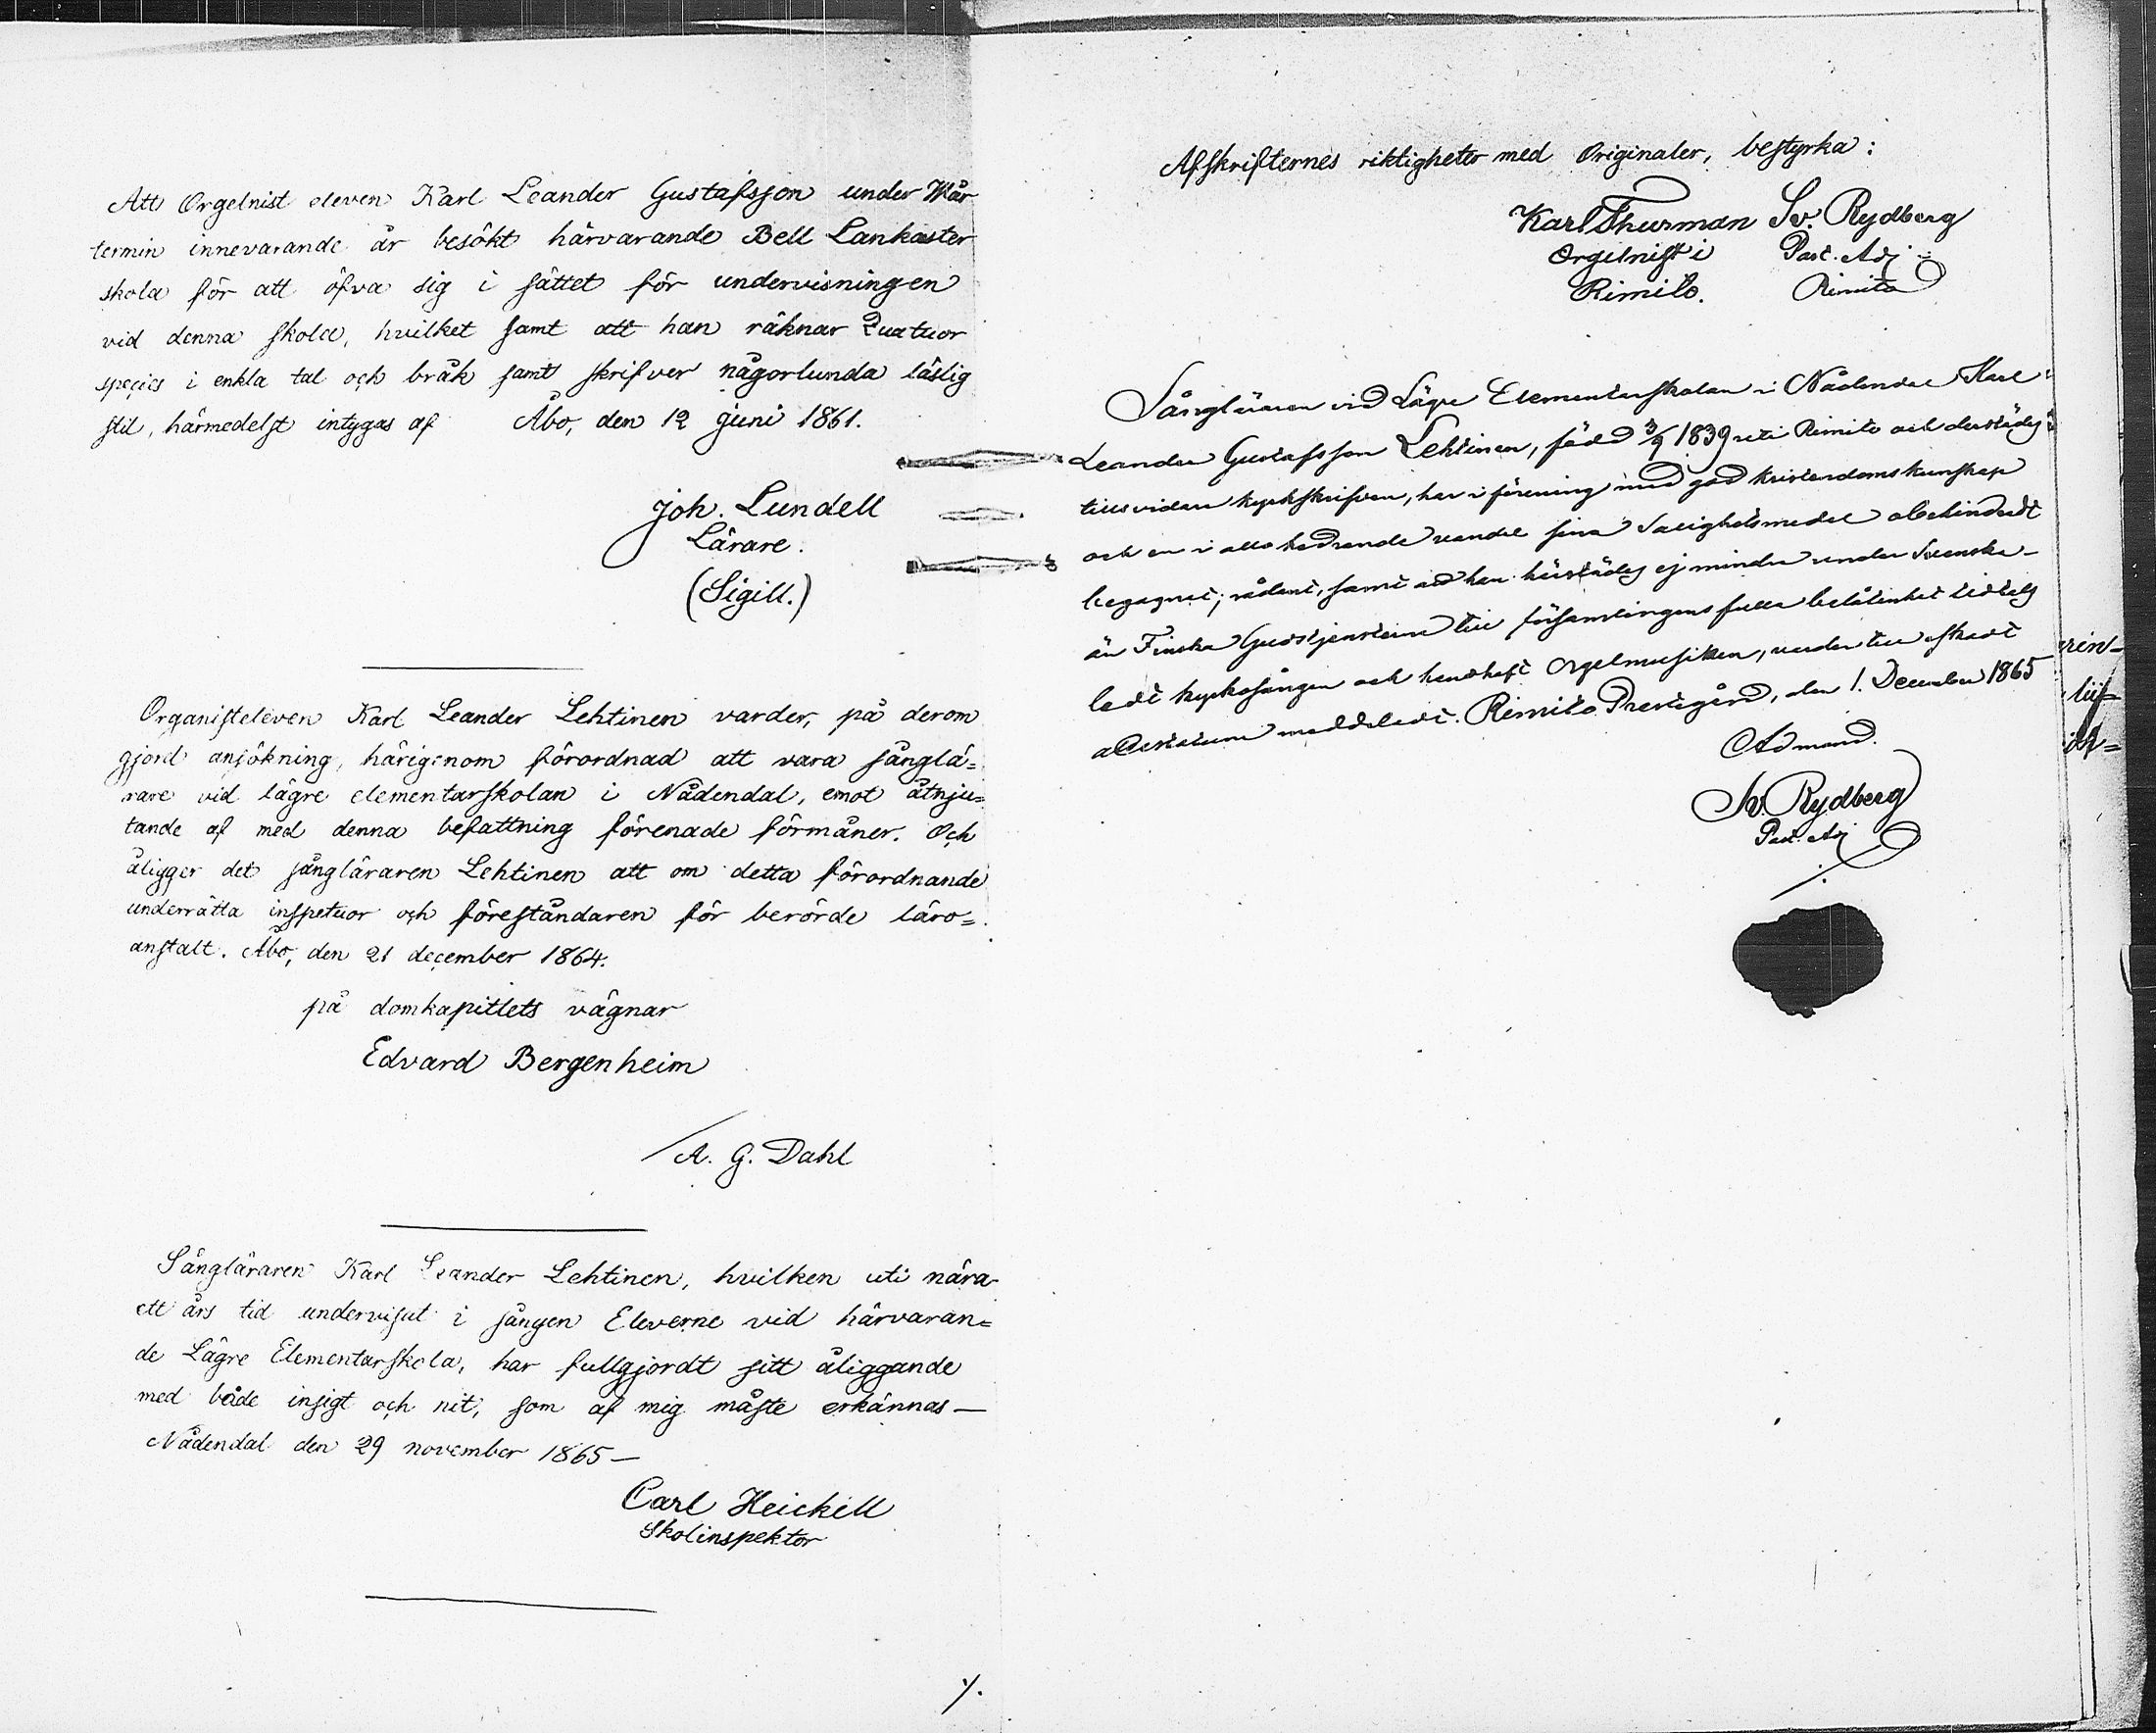 Att Orgelnist eleven Karl Leander Gustafsson under Wår
termin innevarande år besökt härvarande Bell Lankaster
skola för att öfva sig i sättet för undervisningen
vid denna skola, hvilket samt att han räknar Quatuor
species i enkla tal och bråk samt skrifver någorlunda läslig
stil, härmedelst intygas af Åbo, den 12 juni 1861.
Joh. Lundell
Lärare.
(Sigill.)
Organisteleven Karl Leander Lehtinen varder, på derom
gjord ansökning, härigenom förordnad att vara sånglä=
rare vid lägre elementarskolan i Nådendal, emot åtnju=
tande af med denna befattning förenade förmåner. Och
åligger det sångläraren Lehtinen att om detta förordnande
underrätta inspetuor och föreståndaren för berörde läro=
anstalt. Åbo, den 21 december 1864.
på domkapitlets vägnar
Edvard Bergenheim
A. G. Dahl
Sångläraren Karl Leander Lehtinen, hvilken uti nära
ett års tid undervisat i sången Eleverne vid härvaran=
de Lägre Elementarskola, har fullgjordt sitt åliggande
med både insigt och nit, som af mig måste erkännas —
Nådendal den 29 november 1865 —
Carl Heickell
Skolinspektor
./.
Afskrifternes riktigheter med Originaler, bestyrka:
Karl Thurman Sv. Rydberg
Orgelnist i Past. Adj
Rimito. Rimito
Sångläraren vid Lägre Elementarskolan i Nådendal Karl
Leander Gustafsson Lehtinen, född 3/9 1839 uti Rimito och derstädes
tillsvidare kyrkskrifven, har i förening med god kristendomskunskap
och en i allo hedrande vandel sina Salighetsmedel obehindradt
begagnat; sådant, samt att han härstädes ej mindre under Svenska
än Finska Gudstjensterne till församlingens fulla belåtenhet
ledt kyrkosången och Orgelmusiken, varder till
attestatum meddeladt. Rimito Prestgård, den 1. December 1865
Ad mand.
Sv. Rydberg
Past. Adj
rin-